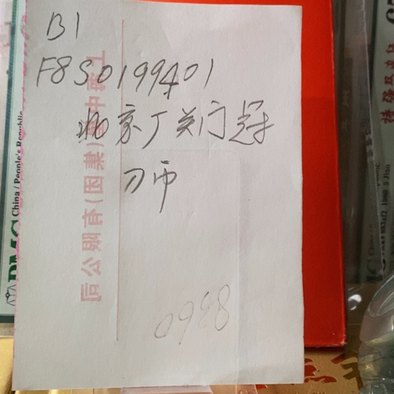 B1
F8S0199401
北京厂关门冠
刀币
0998
China / People's Republic
PMG